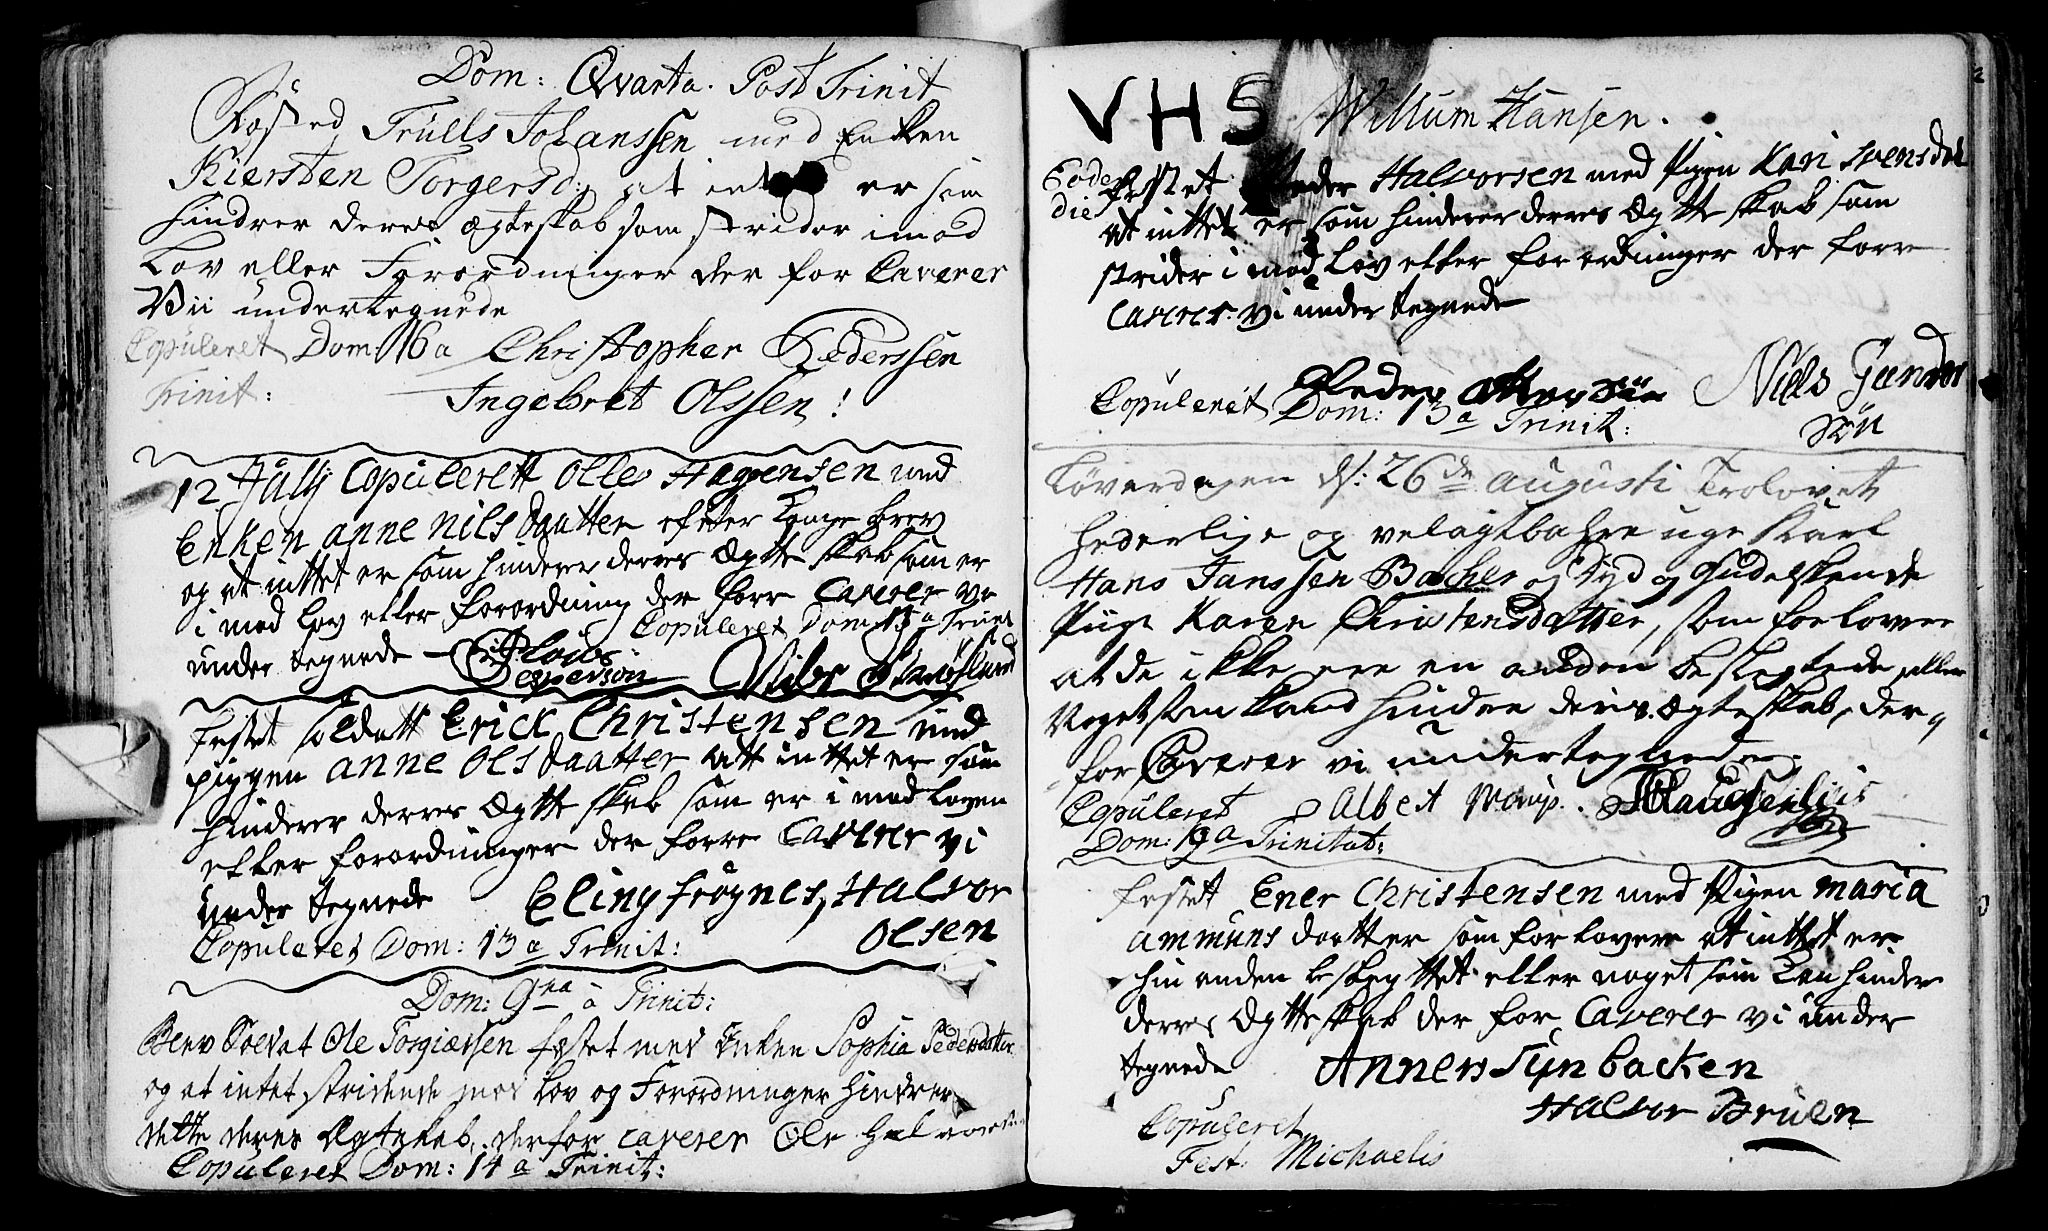 Dom: Qvarta. Post Trinit
Trülls Johanssen med Enken
Kiersten Torgersd: at intet er som
hindrer deres ægteskab som strider imod
Lov eller Forordninger der for Caverer
Vii undertegnede
Copuleret Dom: 16 a Christopher Pederssen
Trinit: Ingebret Olssen!
12 Jülij Copulerett Olle Hagensen med
Enken anne nils daatter efter Konge brev
og at inttet er som hinderer derres Ægtte skab som er
i mod lov eller forordning der forr Caverer vi
Copuleret Dom: 13 a Trinit
under tegnede
Jesperson
festet soldatt Erick Christensen med
piggen anne Ols daatter att inttet er som
hinderer derres Ægtte skab som er i mod loven
eller forordninger der forre Caverer vi
under tegnede Eling frøgnes, Halvor
Copuleret Dom: 13 a Trinit: Olsen
Dom: 9 na a Trinit:
Ole Torgiæssen festet med Enken Sophia Pedersdatter
og at intet stridende mod Lov og Forordninger hindrer
dette deres Ægteskab, derfor caverer Ole Halvorsen
Copuleret Dom: 14 a Trinit:
VHS Willum Hansen.
Eodem
die
festet Peder Halvorsen med Pigen Kari Svensdat
at inttet er som hinderer derres Ægtte skab som
strider i mod Lov eller for ordninger der forr
Caverer vi under tegnede
Niels Gunder
Copuleret Dom: 13 a Trinit: søn
Løverdagen d: 26 de Augusti Trolovet
hederlige og velagtbahre unge Karl
Hans Janssen Bacher og Dyd og Gudelskende
Pige Karen Christensdatter, som forlover
at de ikke ere en anden beslegtede, eller
Noget som kand hindre deris Ægteskab, der
for Caverer vi undertegnede
Copuleret Albet
Dom: 19 a Trinitat:
festet Ener Christensen med Pigen maria
ammuns daatter som forlovere at inttet er
hin anden beslegttet eller noget som kan hinder
derres Ægtteskab der for Caverer vi under
tegnede Anners Synbacken
Halvor Bruen
Copuleret
Fest: Michaelis